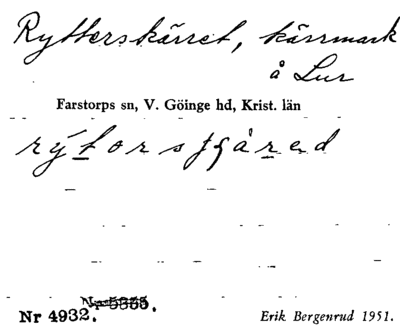 Rytterskärret, kärrmark
å Lur
Farstorps sn, V. Göinge hd, Krist. län
Nr 5355.
Nr 4932. Erik Bergenrud 1951.